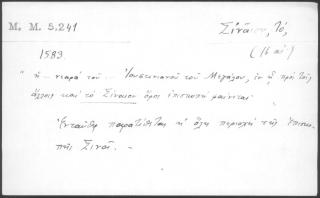 M. M. 5.241
Σίναιον, Τό,
(16 αἰ.)
1583.
"ἡ -- νεαρὰ τοῦ -- Ἰουστινιανοῦ τοῦ Μεγάλου, ἐν ᾗ πρὸς ταῖς
ἄλλαις καὶ τὸ Σίναιον ὄρος ἐπισκοπὴ φαίνεται
Ἐνταῦθα παρατίθεται κ' ὅλη περιοχὴ τῆς Ἐπισκο-
πῆς Σινᾶ. -